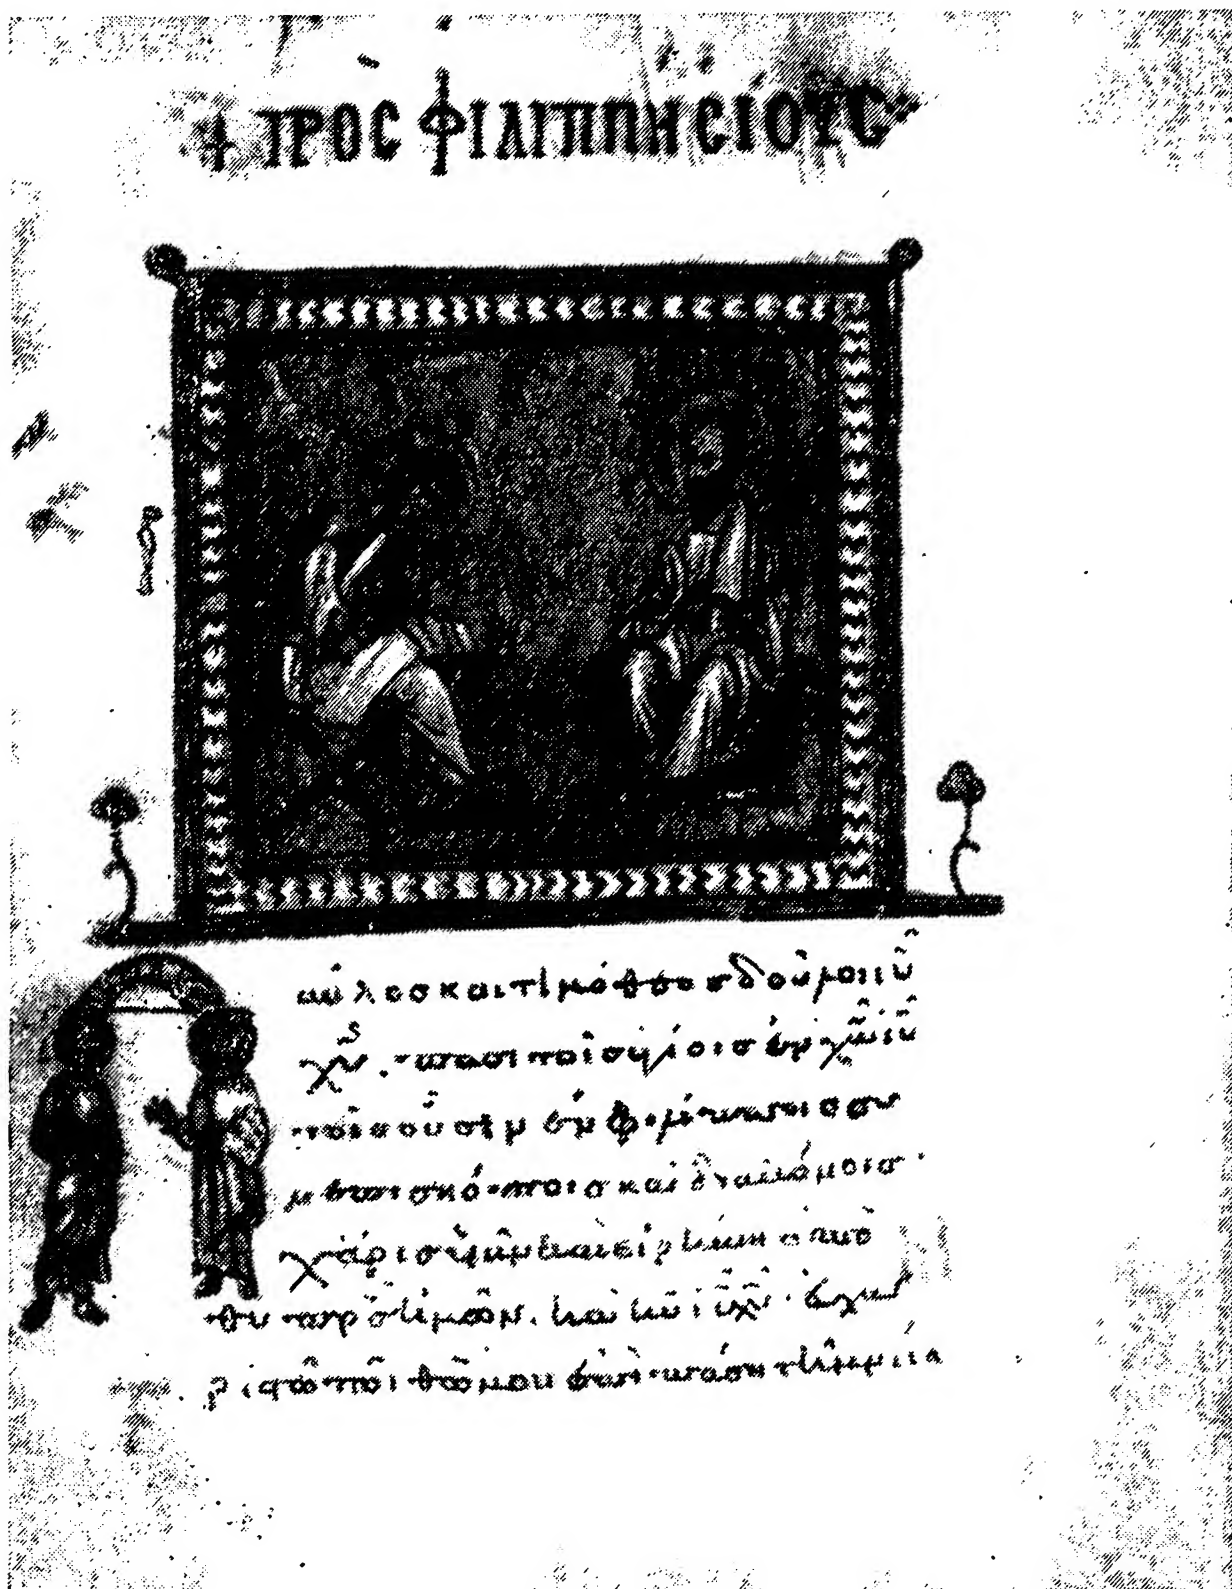 + ΠΡΟC ΦΙΛΙΠΠΗCΙΟΥC
αῦλοσ και τιμόθεοσ δοῦλοι ιῦ
χῦ. πασι τοῖσ ἁγίοισ ἐν χῶ ιῦ
τοῖσ οὖσιν ἐν φιλίπποισ συ
νεπισκόποισ και διακόνοισ·
χάρισ ὑμῖν και εἰρήνη ἀπὸ
θυ πρσ ἡμῶν. και κυ ιῦ χῦ· εὐχα
ριστῶ τῶ θῶ μου ἐπὶ πάση τῆ μνεία